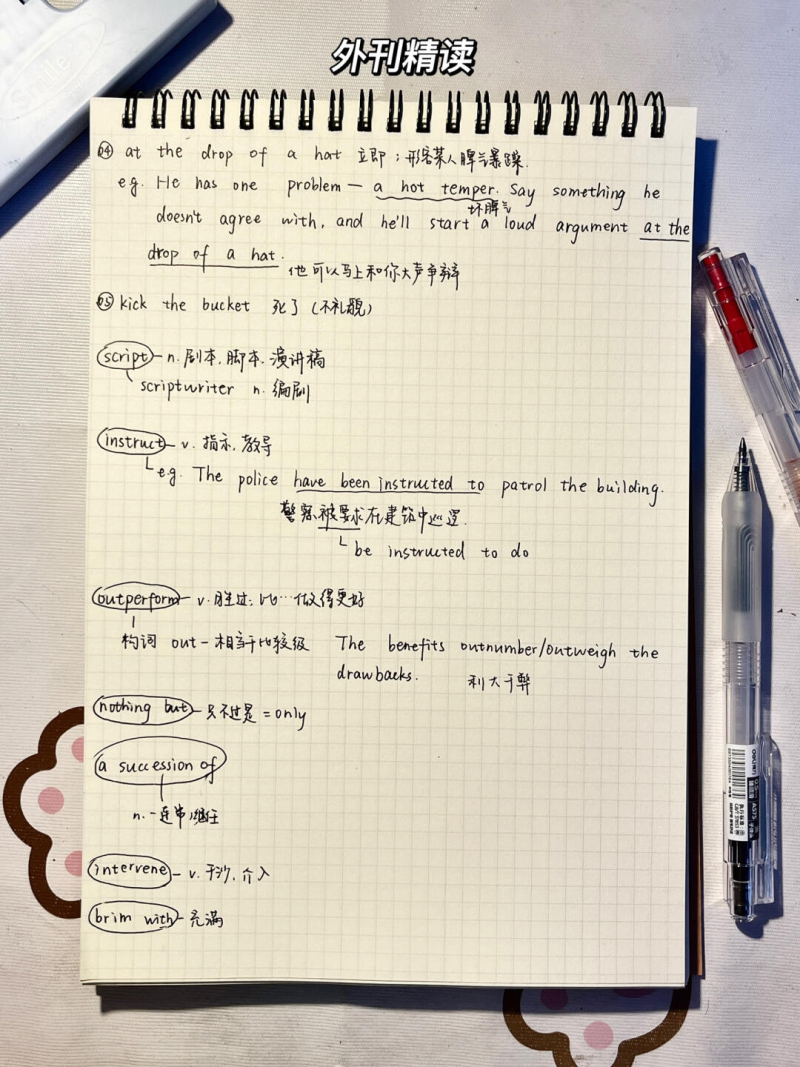 外刊精读
04 at the drop of a hat 立即；形容某人脾气暴躁.
eg. He has one problem — a hot temper. Say something he
坏脾气
doesn't agree with, and he'll start a loud argument at the
drop of a hat.
他可以马上和你大声争辩
05 kick the bucket 死了（不礼貌）
script — n. 剧本, 脚本. 演讲稿
scriptwriter n. 编剧
instruct — v. 指示, 教导
eg. The police have been instructed to patrol the building.
警察被要求在建筑中巡逻.
be instructed to do
outperform — v. 胜过; 比…做得更好
构词 out - 相当于比较级 The benefits outnumber/outweigh the
drawbacks. 利大于弊
nothing but — 只不过是 = only
a succession of
n. 一连串, 继任
intervene — v. 干涉, 介入
brim with — 充满